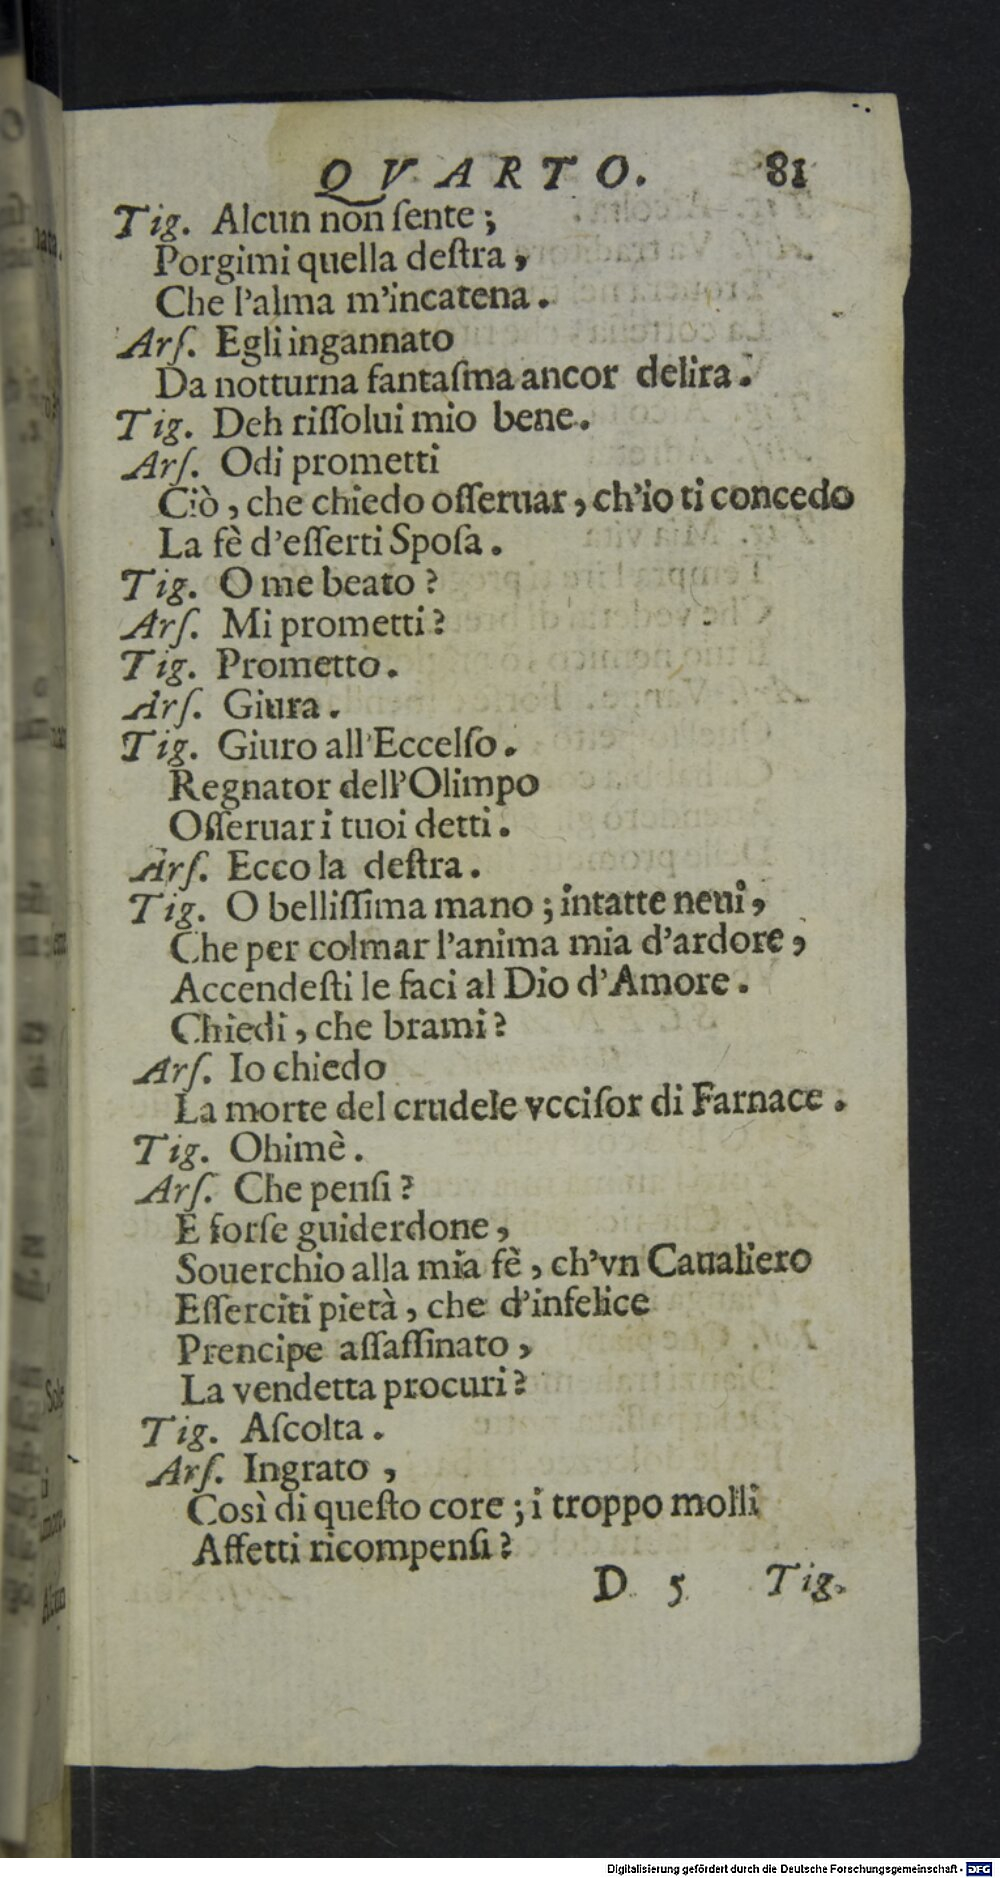 QVARTO. 81
Tig. Alcun non ſente;
Porgimi quella deſtra,
Che l'alma m'incatena.
Arſ. Egli ingannato
Da notturna fantaſma ancor delira.
Tig. Deh riſſolui mio bene.
Arſ. Odi prometti
Ciò, che chiedo oſſeruar, ch'io ti concedo
La fè d'eſſerti Spoſa.
Tig. O me beato?
Arſ. Mi prometti?
Tig. Prometto.
Arſ. Giura.
Tig. Giuro all'Eccelſo.
Regnator dell'Olimpo
Oſſeruar i tuoi detti.
Arſ. Ecco la deſtra.
Tig. O belliſſima mano; intatte neui,
Che per colmar l'anima mia d'ardore,
Accendeſti le faci al Dio d'Amore.
Chiedi, che brami?
Arſ. Io chiedo
La morte del crudele vcciſor di Farnace.
Tig. Ohimè.
Arſ. Che penſi?
E forſe guiderdone,
Souerchio alla mia fè, ch'vn Caualiero
Eſſerciti pietà, che d'infelice
Prencipe aſſaſſinato,
La vendetta procuri?
Tig. Aſcolta.
Arſ. Ingrato,
Così di queſto core; i troppo molli
Affetti ricompenſi?
D 5 Tig.
Digitalisierung gefördert durch die Deutsche Forschungsgemeinschaft - DFG